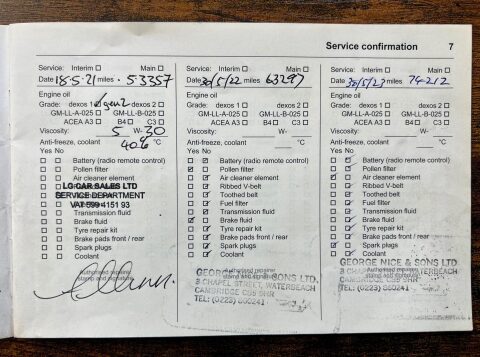 Service confirmation 7
Service: Interim □ Main □
Date 18.5.21 miles 53357
Engine oil
Grade: dexos 1 gen2 dexos 2 □
GM-LL-A-025 □ GM-LL-B-025 □
ACEA A3 □ B4 □ C3 □
Viscosity: 5 W-30
Anti-freeze, coolant °C
Yes No
Battery (radio remote control)
Pollen filter
Air cleaner element
LG CAR SALES LTD
SERVICE DEPARTMENT
VAT 599 4151 93
Transmission fluid
Brake fluid
Tyre repair kit
Brake pads front / rear
Spark plugs
Coolant
Authorised repairer
stamp and signature
Service: Interim □ Main □
Date 30/5/22 miles 63297
Engine oil
Grade: dexos 1 □ dexos 2 □
GM-LL-A-025 □ GM-LL-B-025 □
ACEA A3 □ B4 □ C3 □
Viscosity: W-
Anti-freeze, coolant °C
Yes No
Battery (radio remote control)
Pollen filter
Air cleaner element
Ribbed V-belt
Toothed belt
Fuel filter
Transmission fluid
Brake fluid
Tyre repair kit
Brake pads front / rear
Spark plugs
Coolant
Authorised repairer
stamp and signature
GEORGE NICE & SONS LTD.
3 CHAPEL STREET, WATERBEACH
CAMBRIDGE CB5 9HR
TEL: (0223) 860241
Service: Interim □ Main □
Date 30/5/23 miles 74212
Engine oil
Grade: dexos 1 □ dexos 2 □
GM-LL-A-025 □ GM-LL-B-025 □
ACEA A3 □ B4 □ C3 □
Viscosity: W-
Anti-freeze, coolant °C
Yes No
Battery (radio remote control)
Pollen filter
Air cleaner element
Ribbed V-belt
Toothed belt
Fuel filter
Transmission fluid
Brake fluid
Tyre repair kit
Brake pads front / rear
Spark plugs
Coolant
Authorised repairer
stamp and signature
GEORGE NICE & SONS LTD.
3 CHAPEL STREET, WATERBEACH
CAMBRIDGE CB5 9HR
TEL: (0223) 860241